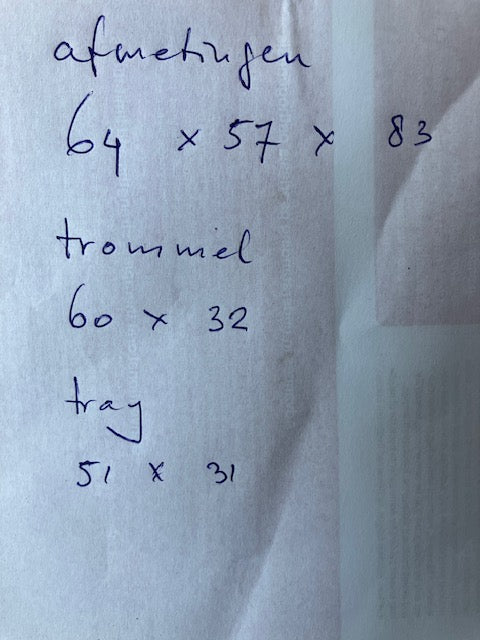 afmetingen
64 x 57 x 83
trommel
60 x 32
tray
51 x 31